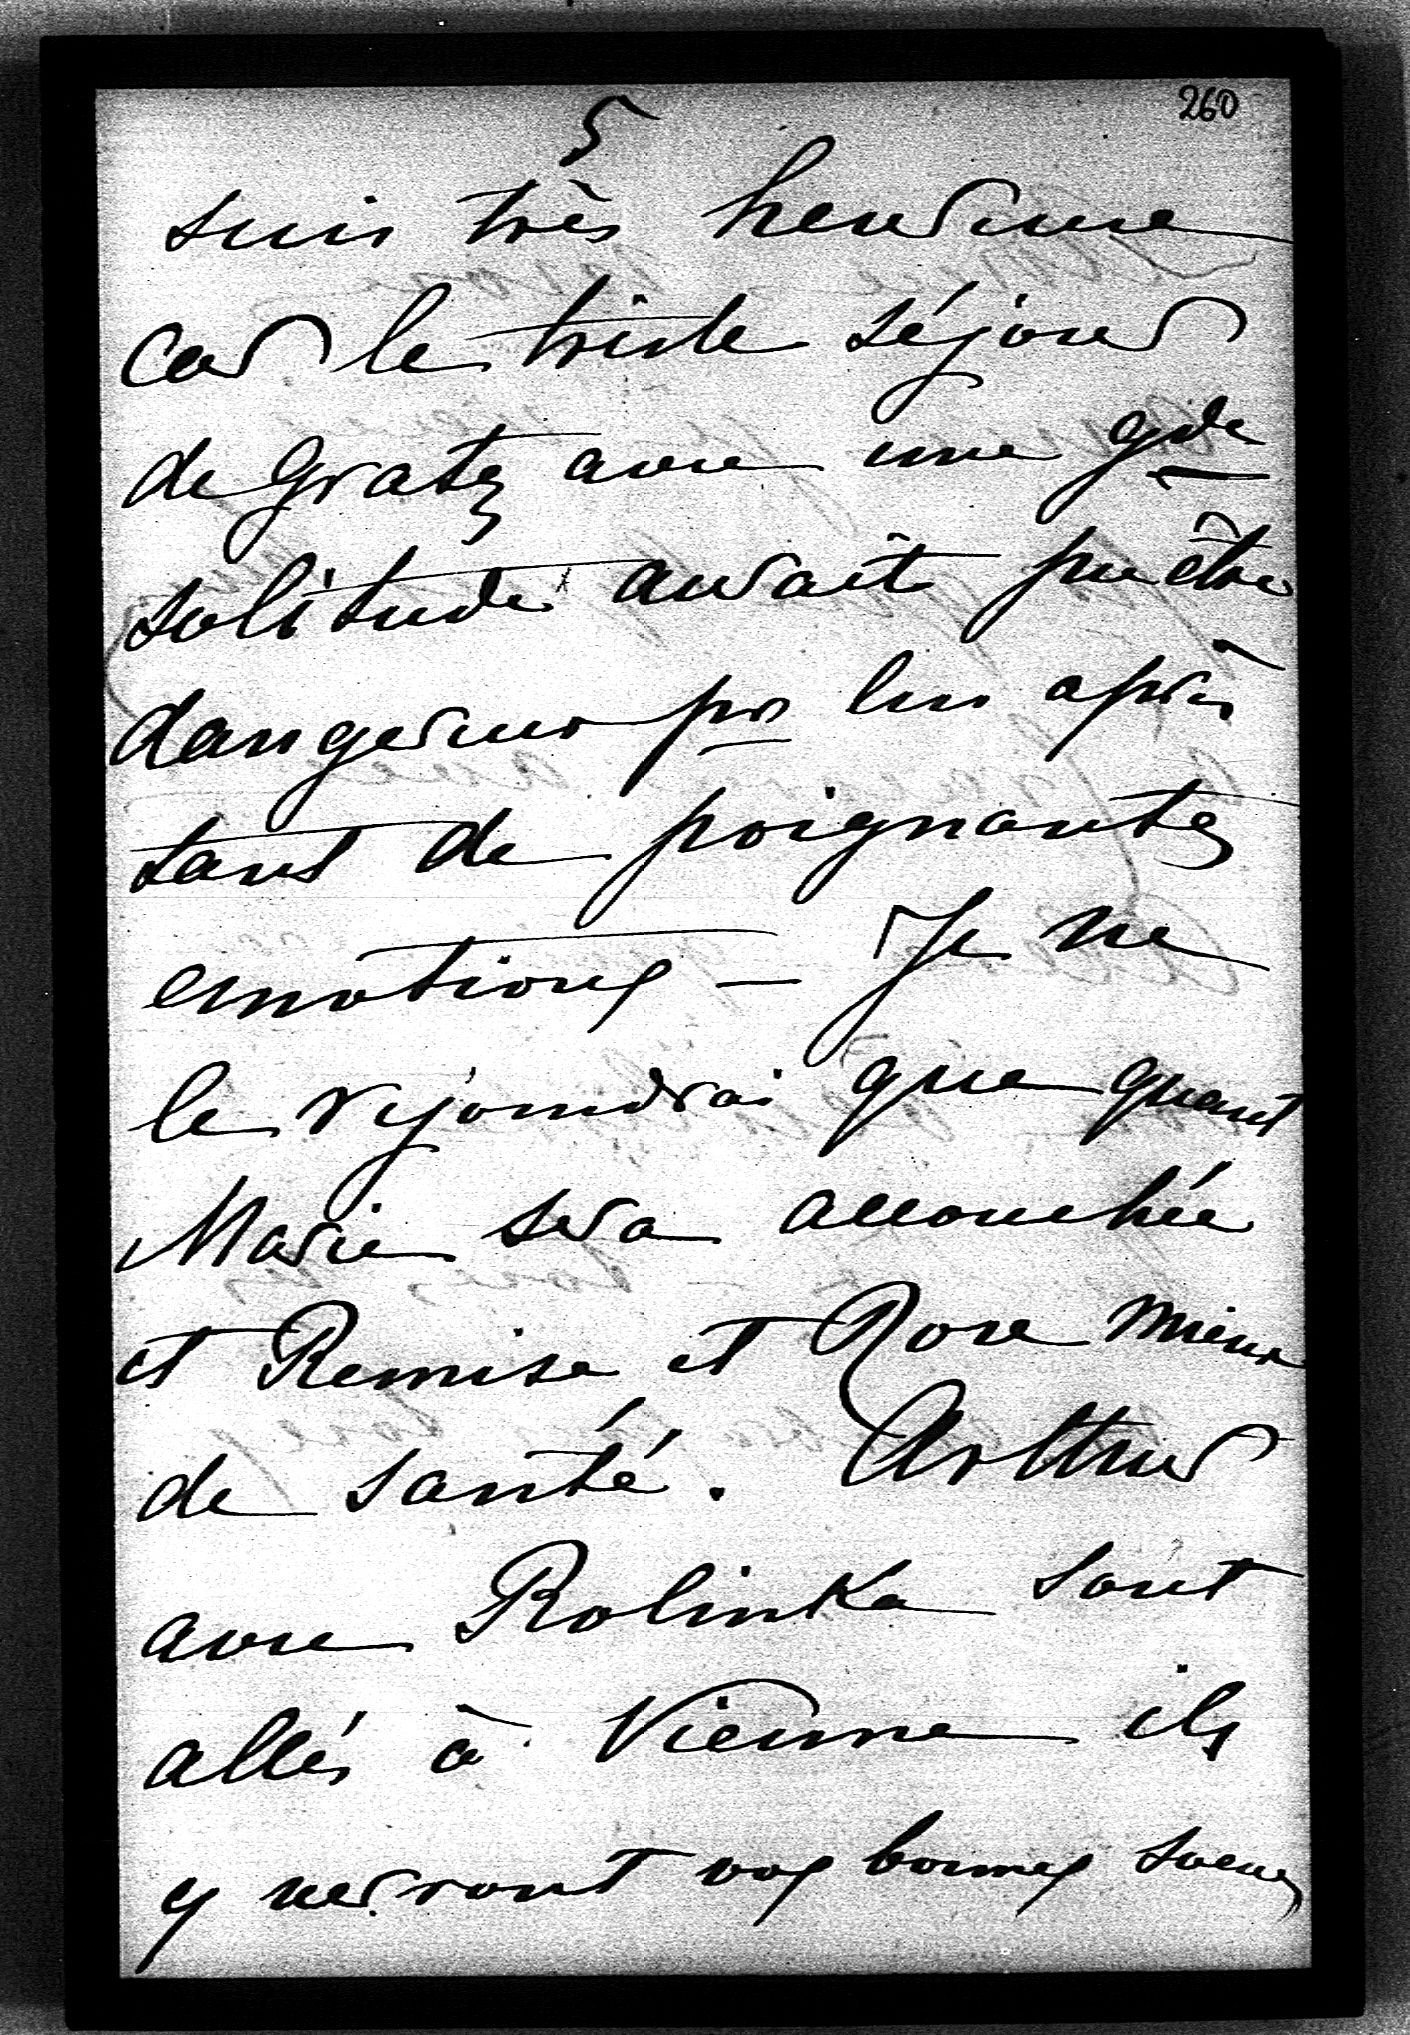 260
5
suis très heureuse
car le triste séjour
de Gratz avec une gde
solitude aurait pu être
dangereux pr lui après
tant de poignantes
emotions — Je ne
le rejoindrai que quant
Marie sera accouchée
et Remise et Rose mieux
de santé. Arthur
avec Rolinka sont
allés à Vienne ils
y verront vos bonnes soeurs